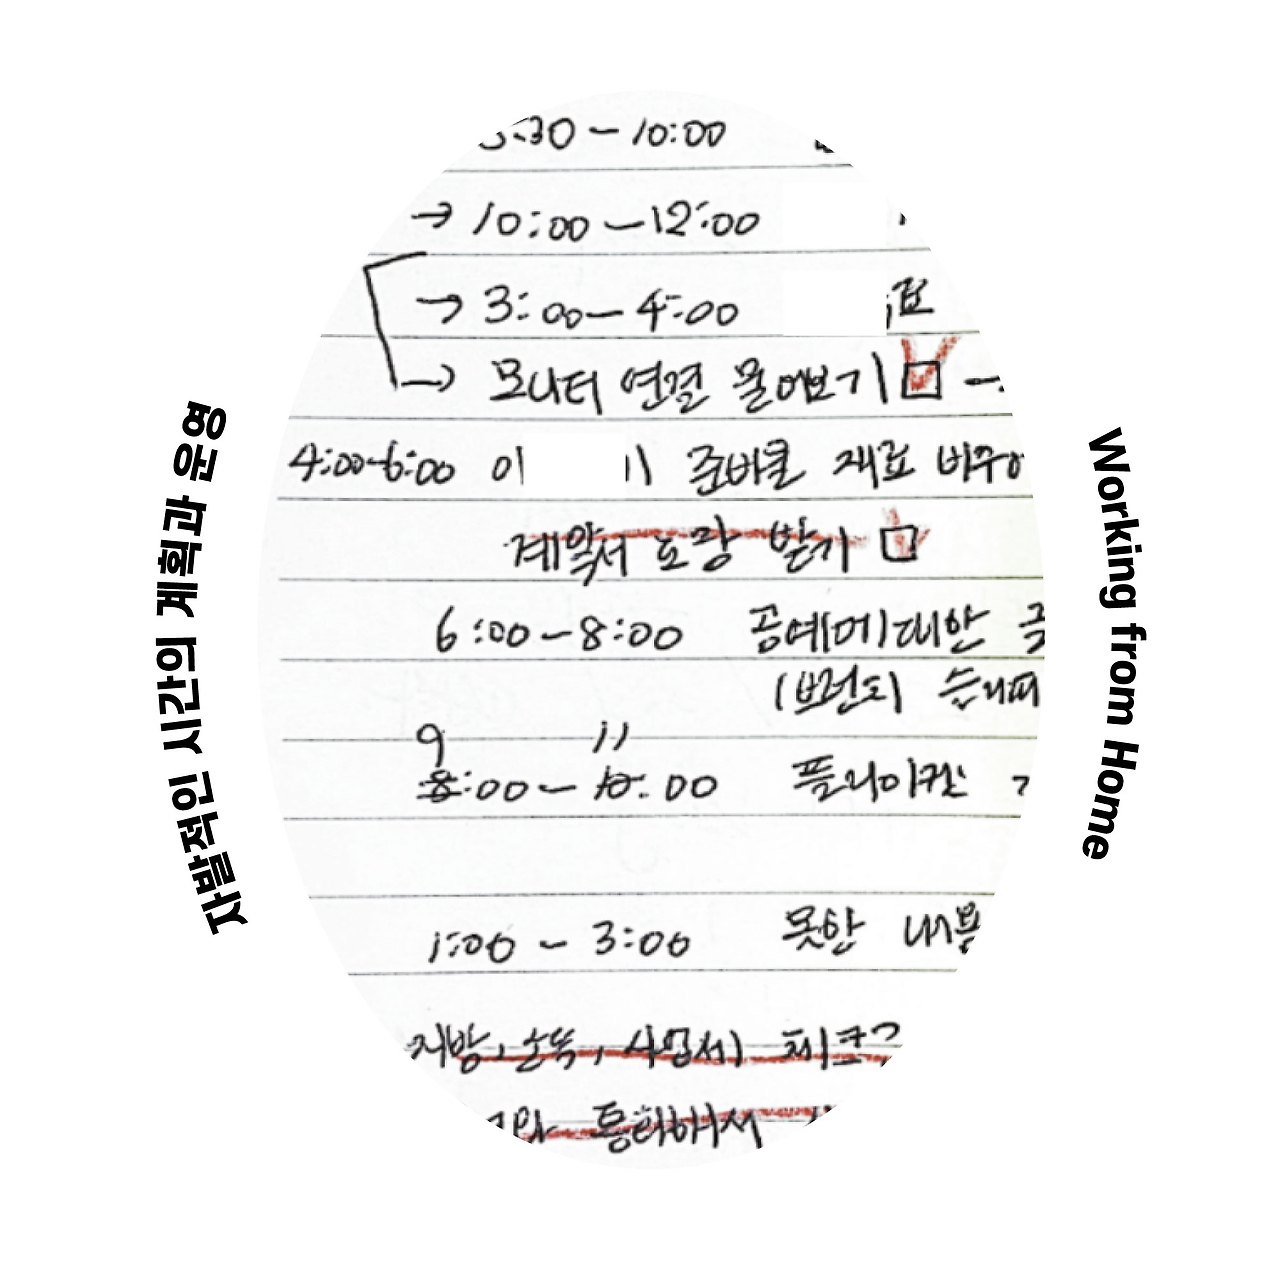 자발적인 시간의 계획과 운영
:30 – 10:00
→ 10:00 – 12:00
→ 3:00 – 4:00 료
→ 모니터 연결 물어보기
4:00-6:00 이 11 준비물 재료
계약서 도장 받기
6:00 – 8:00 공예에 대한
(브랜드)
9 11
8:00 – 10:00 플리마켓
1:00 – 3:00 못한 내용
사업서) 체크
통해서
Working from Home